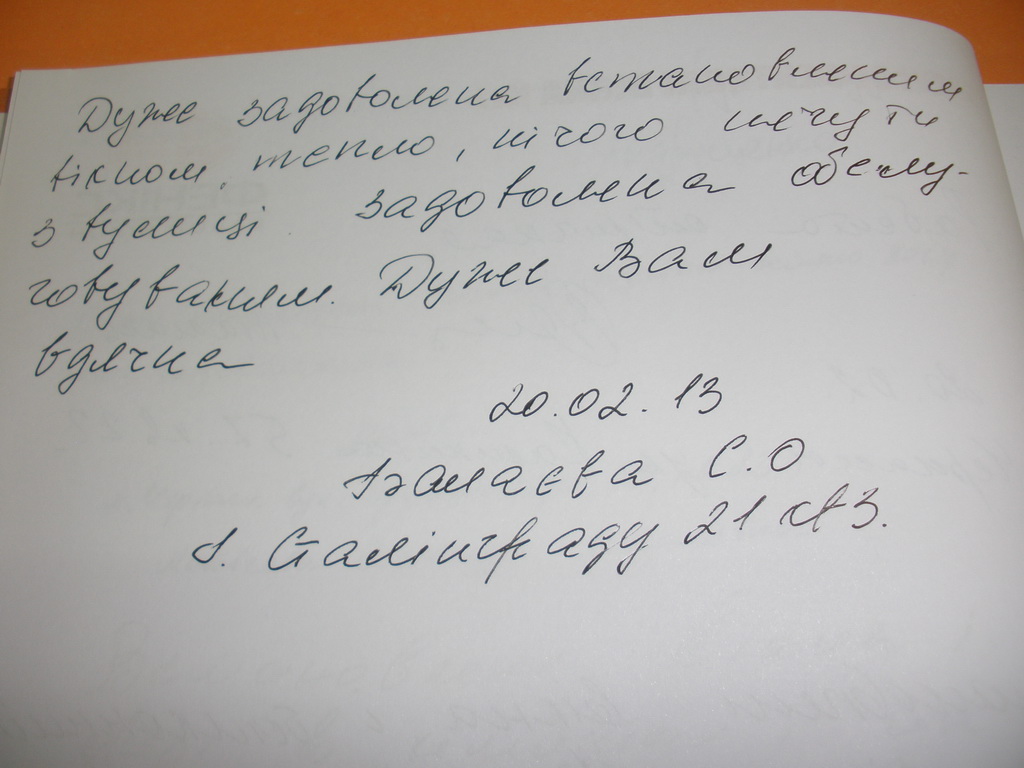 Дуже задоволена встановленням
вікном, тепло, нічого не чути
з вулиці задоволена обслу-
говуванням. Дуже Вам
вдячна
20.02.13
С.О
Сталінграду 21